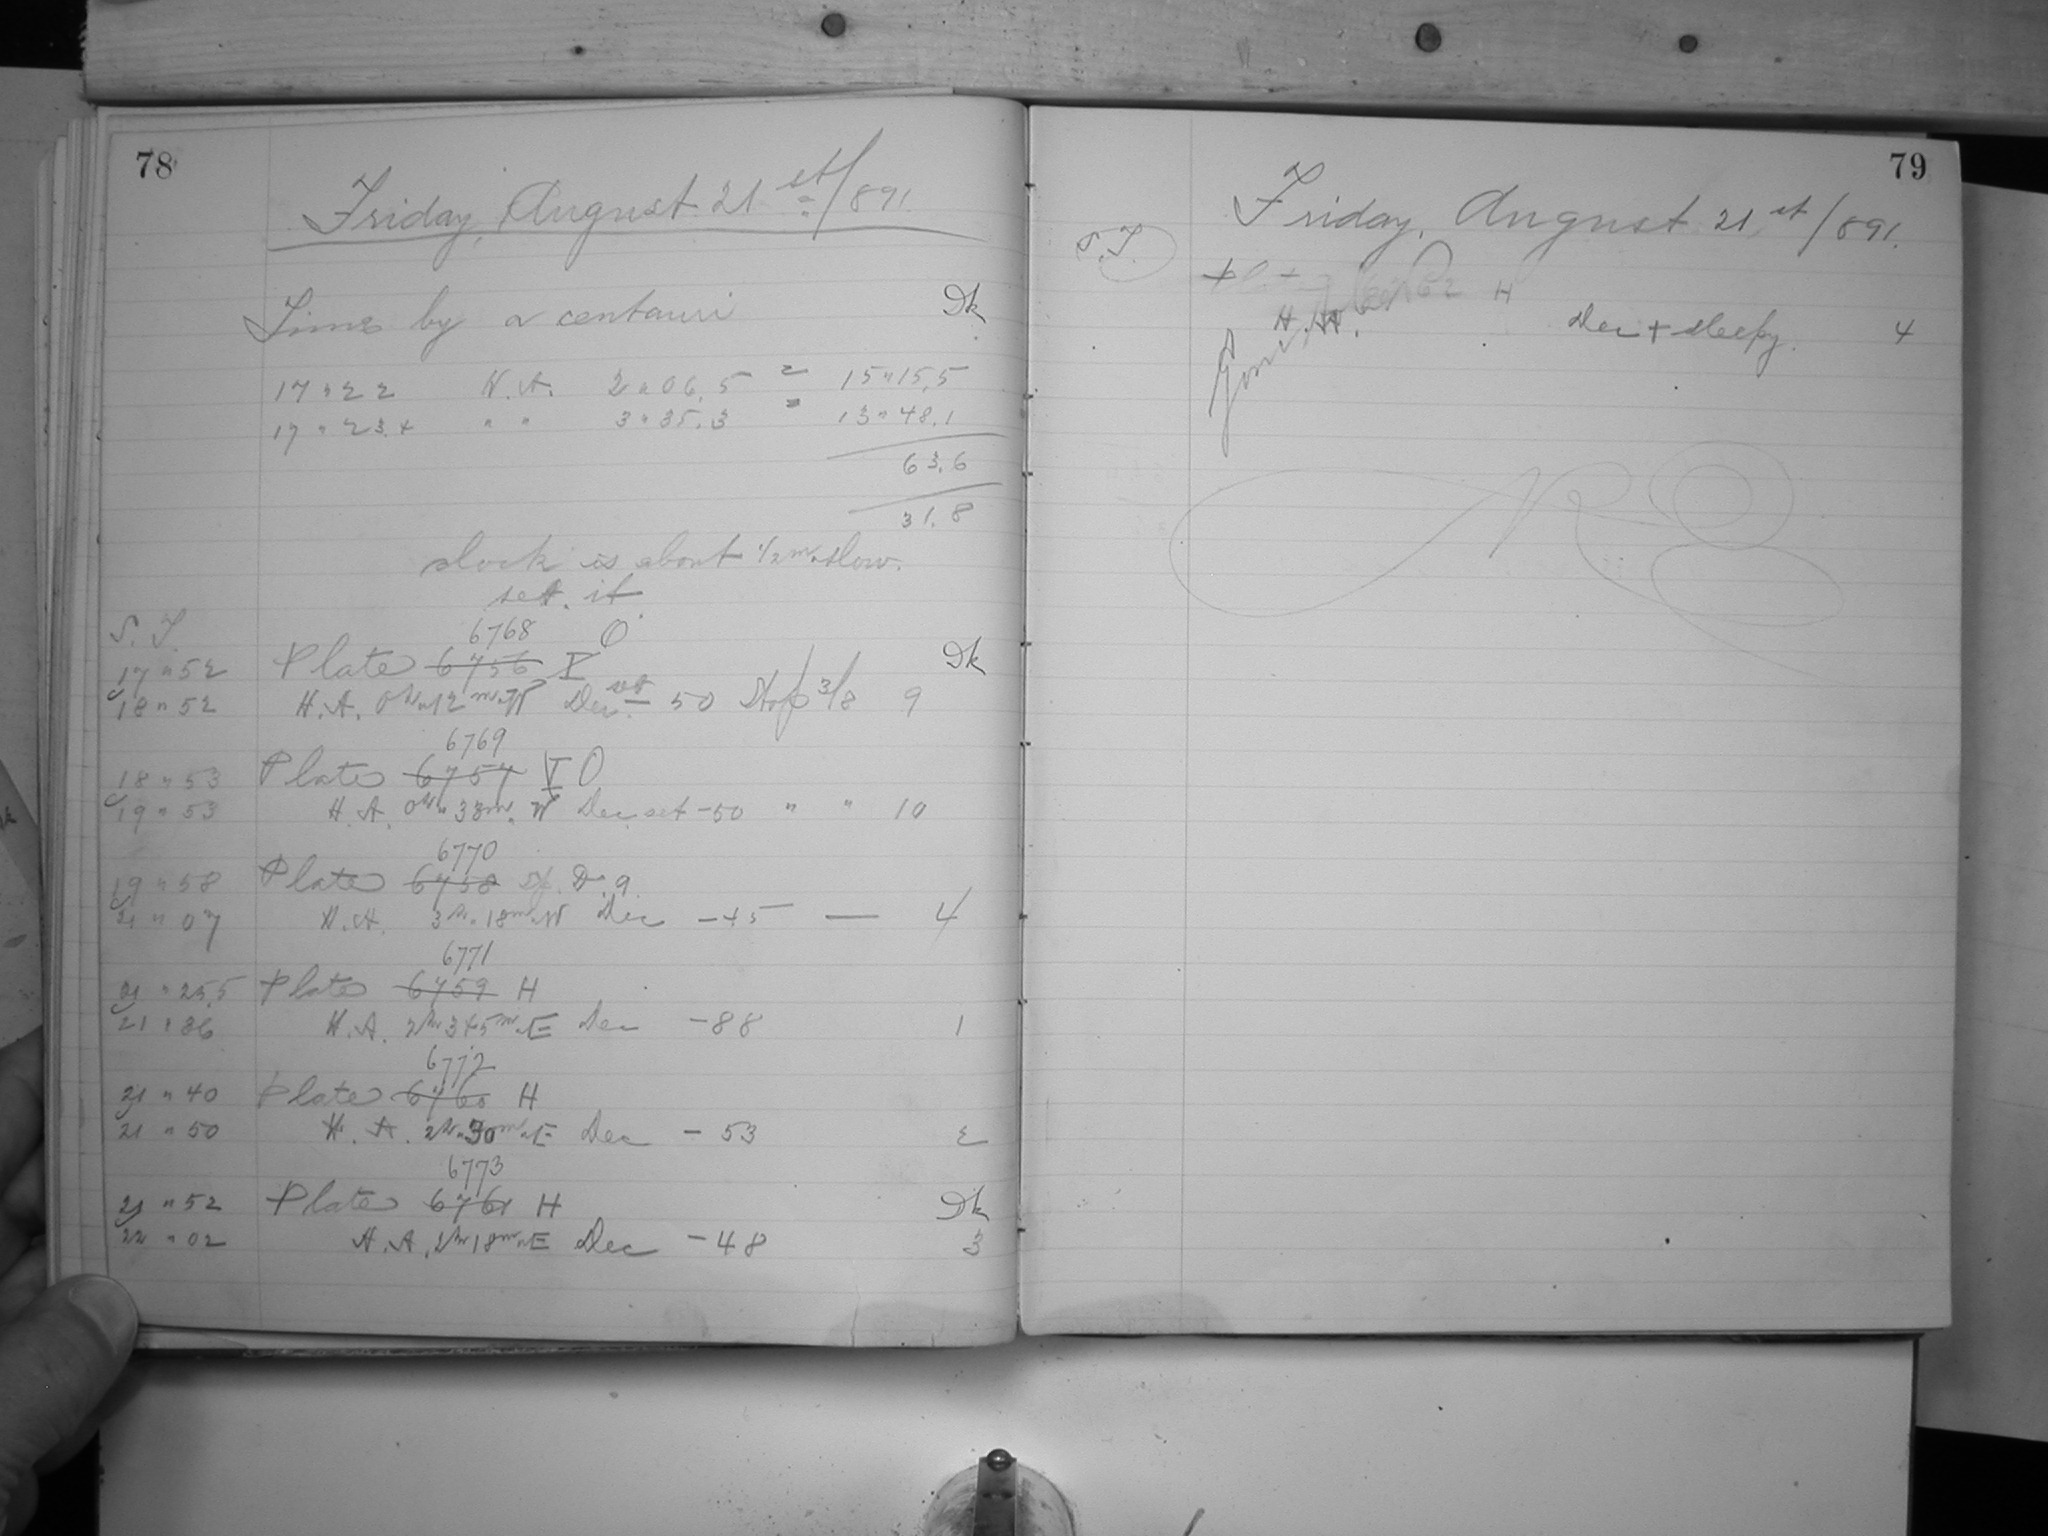 78
Friday, August 21st/891.
Time by α centauri Dk
17 " 22 H.A. 2 " 06.5 = 15 " 15.5
17 " 23.4 " " 3 " 35.3 = 13 " 48.1
63.6
31.8
clock is about 1/2 m. slow.
set it.
S.T. 6768
17 " 52 Plate 6756 V O Dk
18 " 52 H.A. 0h " 12m. W Dec. set - 50 Stop 3/8 9
6769
18 " 53 Plate 6757 V O
19 " 53 H.A. 0h " 33m. W Dec. set -50 " " 10
6770
19 " 58 Plate 6758 Sp. D. 9.
21 " 07 H.A. 3h " 18m. W Dec -45 — 4
6771
21 " 25.5 Plate 6759 H
21 " 36 H.A. 2h 345m. E Dec -88 1
6772
21 " 40 Plate 6760 H
21 " 50 H.A. 2h " 30m. E Dec - 53 2
6773
21 " 52 Plate 6761 H Dk
22 " 02 H.A. 2h 18m. E Dec -48 3
79
Friday, August 21st/891.
S.T.
Plate H
H.A. Dec + sleepy. 4